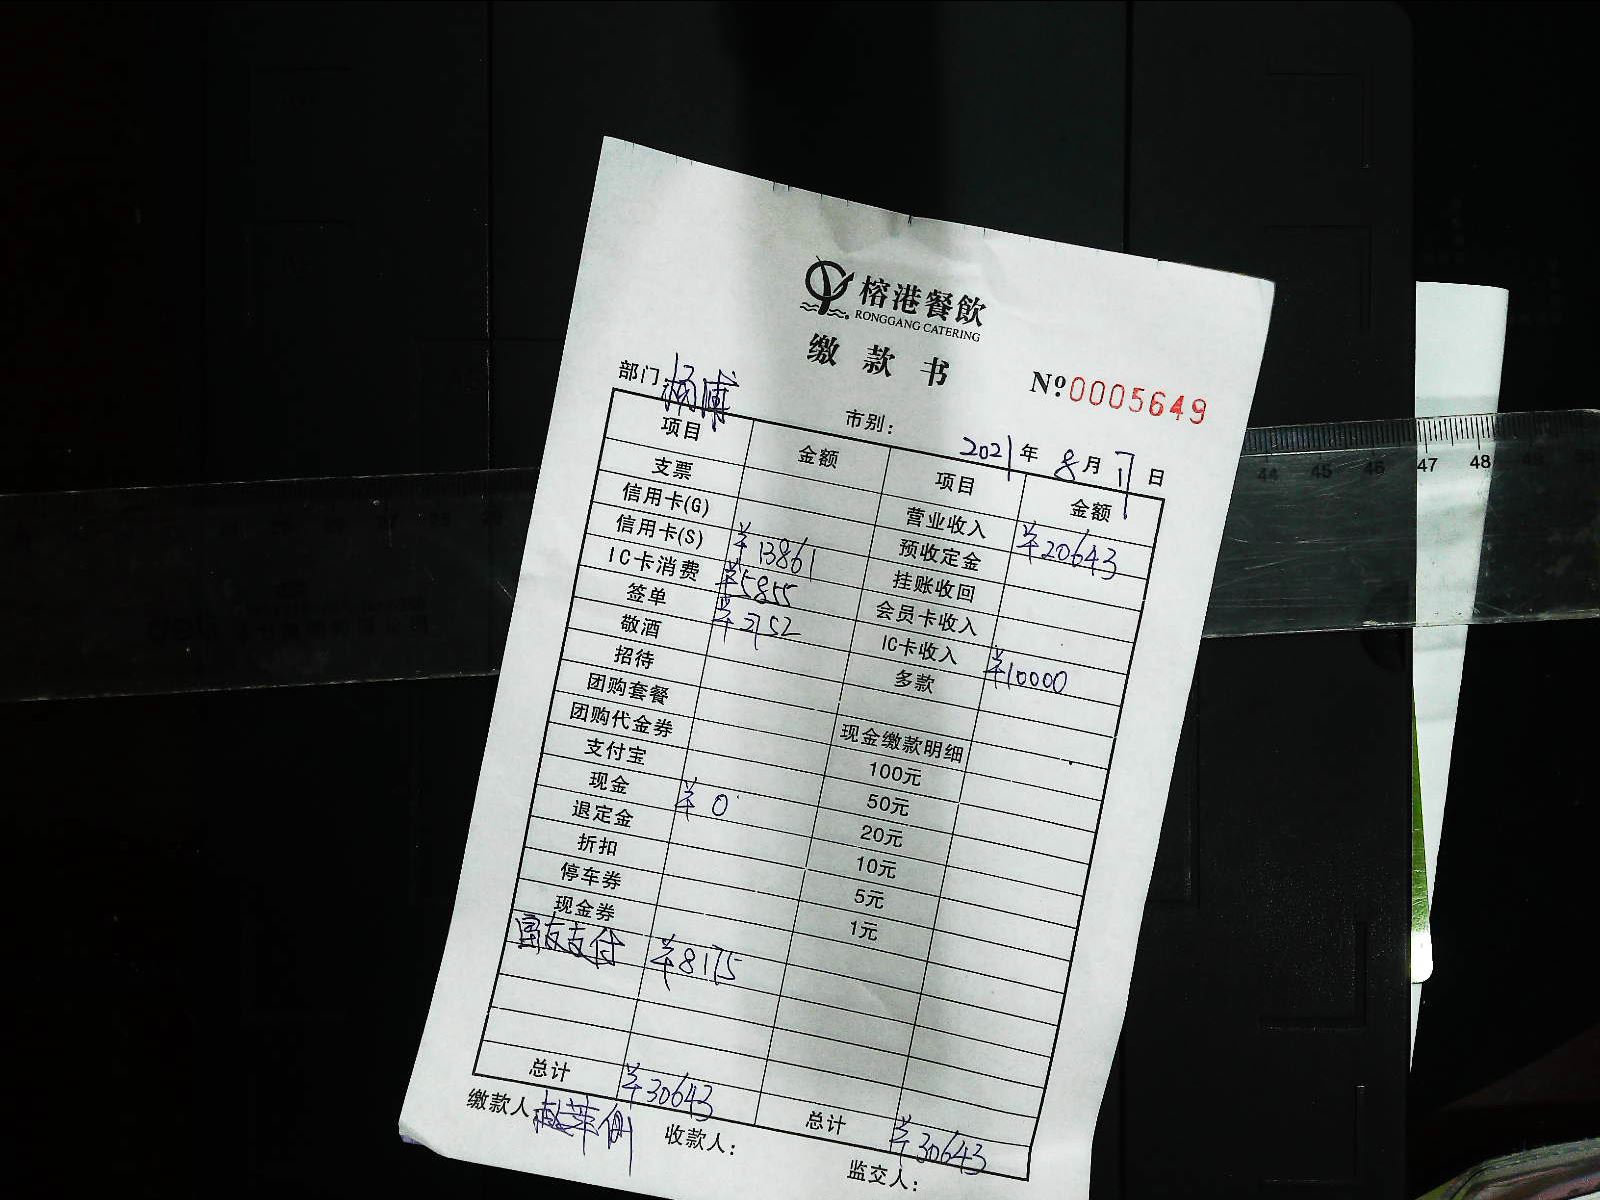 榕港餐飲
RONGGANG CATERING
缴款书
No 0005649
部门
市别：
2021年8月7日
项目 金额 项目 金额
支票 营业收入 ¥20643
信用卡(G) 预收定金
信用卡(S) ¥13861 挂账收回
IC卡消费 ¥5855 会员卡收入
签单 ¥2752 IC卡收入 ¥10000
敬酒 多款
招待
团购套餐 现金缴款明细
团购代金券 100元
支付宝 50元
现金 ¥0 20元
退定金 10元
折扣 5元
停车券 1元
现金券
富友支付 ¥8175
总计 ¥30643 总计 ¥30643
缴款人 收款人： 监交人：
44 45 46 47 48